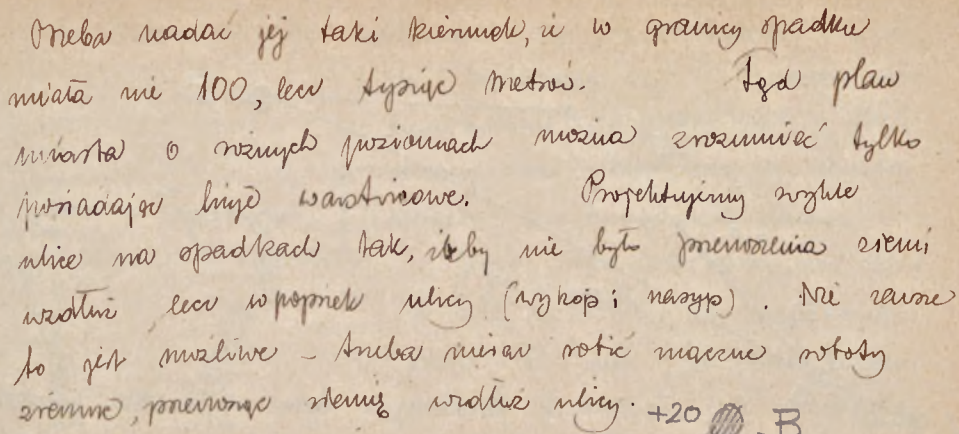 trzeba nadać jej taki kierunek, iż w granicy spadku
miała nie 100, lecz tysiąc metrów. Tąd plan
miasta o rożnych poziomach można zrozumieć tylko
posiadając linje warstwicowe. Projektujemy zwykle
ulice na spadkach tak, iżeby nie było przenoszenia ziemi
wzdłuż, lecz w poprzek ulicy (wykop i nasyp). Nie zawsze
to jest możliwe – trzeba nieraz robić znaczne roboty
ziemne, przenosząc ziemię wzdłuż ulicy. +20 B